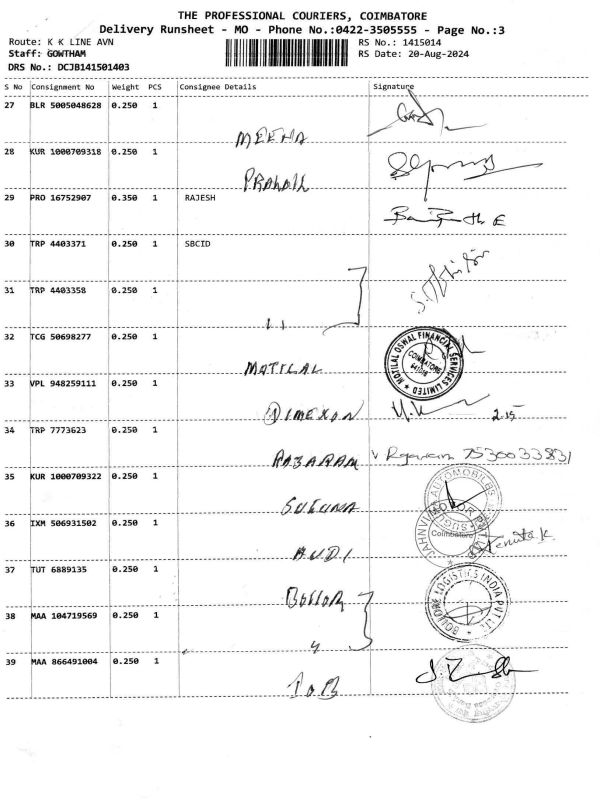 THE PROFESSIONAL COURIERS, COIMBATORE
Delivery Runsheet - MO - Phone No.:0422-3505555 - Page No.:3
Route: K K LINE AVN
RS No.: 1415014
Staff: GOWTHAM
RS Date: 20-Aug-2024
DRS No.: DCJB141501403
S No Consignment No Weight PCS Consignee Details Signature
27 BLR 5005048628 0.250 1
MEENA
28 KUR 1000709318 0.250 1
29 PRO 16752907 0.350 1 RAJESH
30 TRP 4403371 0.250 1 SBCID
31 TRP 4403358 0.250 1
32 TCG 50698277 0.250 1
MOTILAL OSWAL FINANCIAL SERVICES LIMITED
COIMBATORE
641018
MOTILAL
33 VPL 948259111 0.250 1
DIMEXON
2.15
34 TRP 7773623 0.250 1
RAJARAM
7530033831
35 KUR 1000709322 0.250 1
SUGUNA
36 IXM 506931502 0.250 1
Coimbatore
AUDI
37 TUT 6889135 0.250 1
BOLLORE LOGISTICS INDIA PVT LTD
38 MAA 104719569 0.250 1
39 MAA 866491004 0.250 1